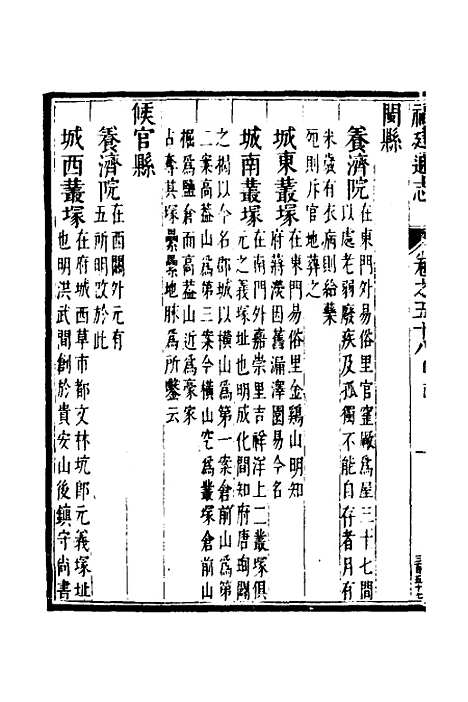 福建通志 卷之五十八
閩縣
養濟院在東門外易俗里官窰廠爲屋三十七間
以處老弱廢疾及孤獨不能自存者月有
米歲有衣病則給藥
死則斥官地葬之
城東叢塚在東門易俗里金鷄山明知
府蔣濙因舊漏澤園易今名
城南叢塚在南門外嘉崇里吉祥洋上二叢塚俱
元之義塚址也明成化間知府唐珣闢
之榜以今名郡城以橫山爲第一案倉前山爲第
二案高蓋山爲第三案今橫山空爲叢塚倉前山
掘爲鹽倉而高蓋山近爲豪家
占葬其塚纍纍地脉爲所鑿云
候官縣
養濟院在西關外元有
五所明改於此
城西叢塚在府城西草市都文林坑郎元義塚址
也明洪武間創於貴安山後鎮守尚書